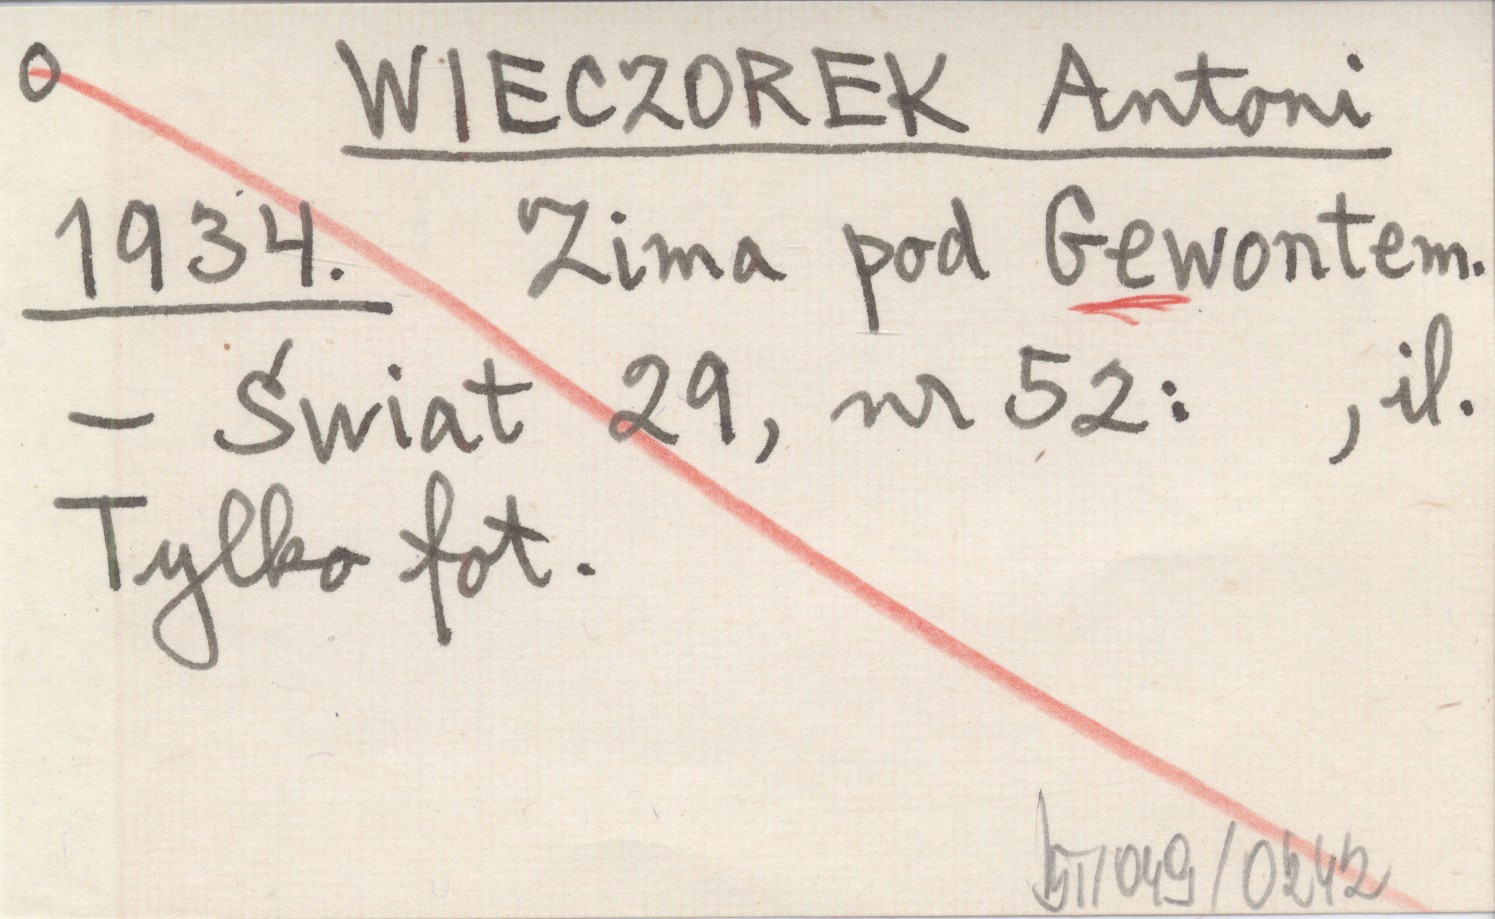 O WIECZOREK Antoni
1934. Zima pod Gewontem.
– Świat 29, nr 52: , il.
Tylko fot.